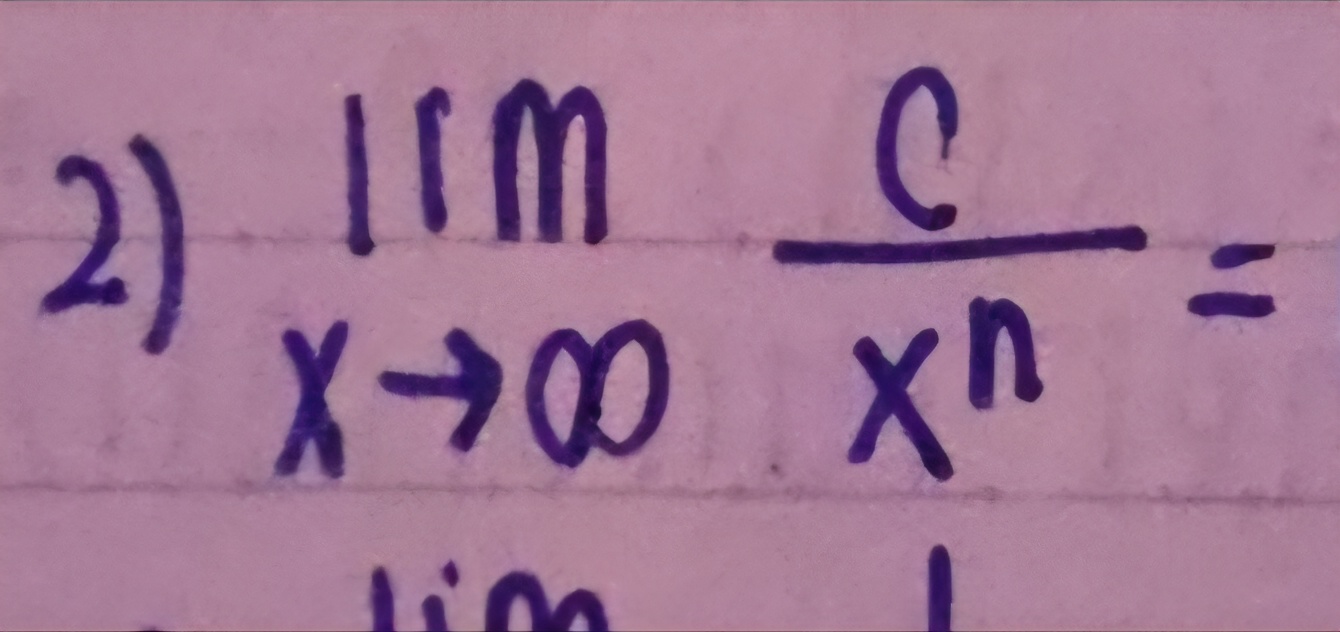 2) lim x→∞ c/xⁿ =
lim 1